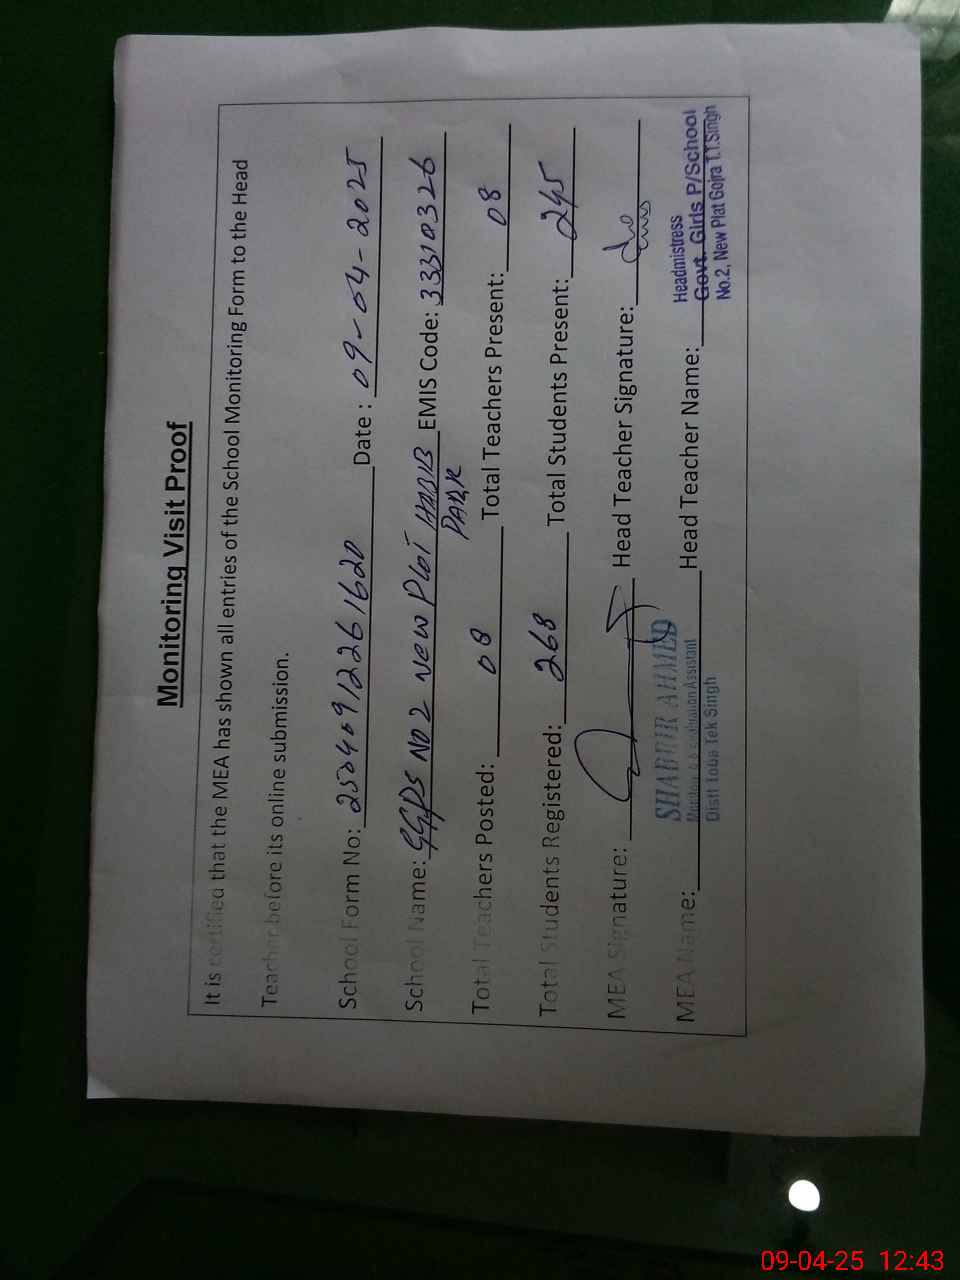 Monitoring Visit Proof
It is certified that the MEA has shown all entries of the School Monitoring Form to the Head
Teacher before its online submission.
School Form No: 25040912261620 Date : 09-04-2025
School Name: GGPS NO 2 New Plot HABIB PARK EMIS Code: 33310326
Total Teachers Posted: 08 Total Teachers Present: 08
Total Students Registered: 268 Total Students Present: 245
MEA Signature: Head Teacher Signature:
MEA Name: Head Teacher Name:
SHABBIR AHMED
Monitoring & Evaluation Assistant
Distt Toba Tek Singh
Headmistress
Govt. Girls P/School
No.2, New Plat Gojra T.T.Singh
09-04-25 12:43